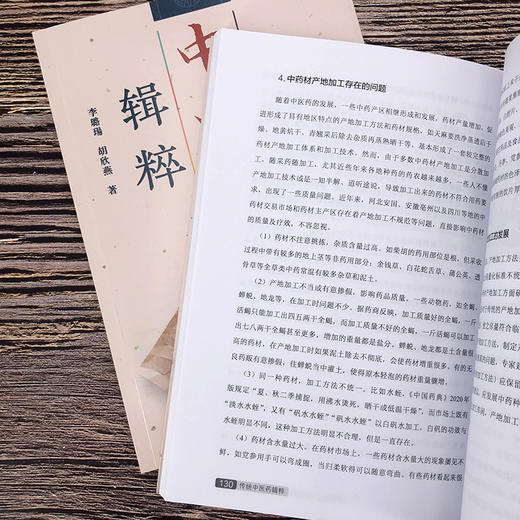 中
辑
粹
李璐瑒 胡欣燕 著
4. 中药材产地加工存在的问题
随着中医药的发展，一些中药产区相继形成和发展，药材产量增加，促
进形成了具有地区特点的产地加工方法和药材规格，如天麻要洗净蒸透后干
燥、地黄炕干、青翘采后除去杂质再蒸熟晒干等，基本形成了一套较完整的
药材产地加工体系和加工技术。然而，由于多数中药材产地加工是分散加
工，随采药随加工，尤其近些年来各地种药的药农越来越多，一些人不懂
产地加工技术或是一知半解、道听途说，导致加工出来的药材不符合用药要
求，出现了一些质量问题。近年来，河北安国、安徽亳州以及四川等地的中
药材交易市场和药材主产区存在着产地加工不规范等问题，直接影响中药材
的质量及疗效，不容忽视。
（1）药材不注意挑拣，杂质含量过高。如柴胡的药用部位是根，但采收
过程中带有较多的地上茎等非药用部分；金钱草、白花蛇舌草、蒲公英、透
骨草等全草类中药常混有较多杂草和泥土。
（2）产地加工不当或有意掺假，影响药品质量。一些动物药，如全蝎、
蝉蜕、地龙等，在加工时问题不少。据药商反映，加工质量好的全蝎，一斤
活蝎只能加工出四五两干全蝎，而加工质量不好的全蝎，一斤活蝎可以加工
出七八两干全蝎甚至更多，增加的重量都是盐分。蝉蜕、地龙都是土含量很
高的药材，在产地加工时如果泥土除去不彻底，会使药材增重很多，有的无
良药贩有意掺假，往蝉蜕当中灌土，使得原本轻泡的药材重量骤增。
（3）同一种药材，加工方法不统一。比如水蛭，《中国药典》2020年
版规定“夏、秋二季捕捉，用沸水烫死，晒干或低温干燥”，而市场上既有
“淡水水蛭”，又有“矾水水蛭”“矾水水蛭”以白矾水加工，白矾的功效与
水蛭明显不同，这种加工方法明显不合理，但是一直存在。
（4）药材含水量过大。在药材市场上，一些药材含水量大的现象屡见不
鲜，如党参用手可以弯成圈，当归柔软得可以随意弯曲。有些药材看起来很
130 传统中医药辑粹